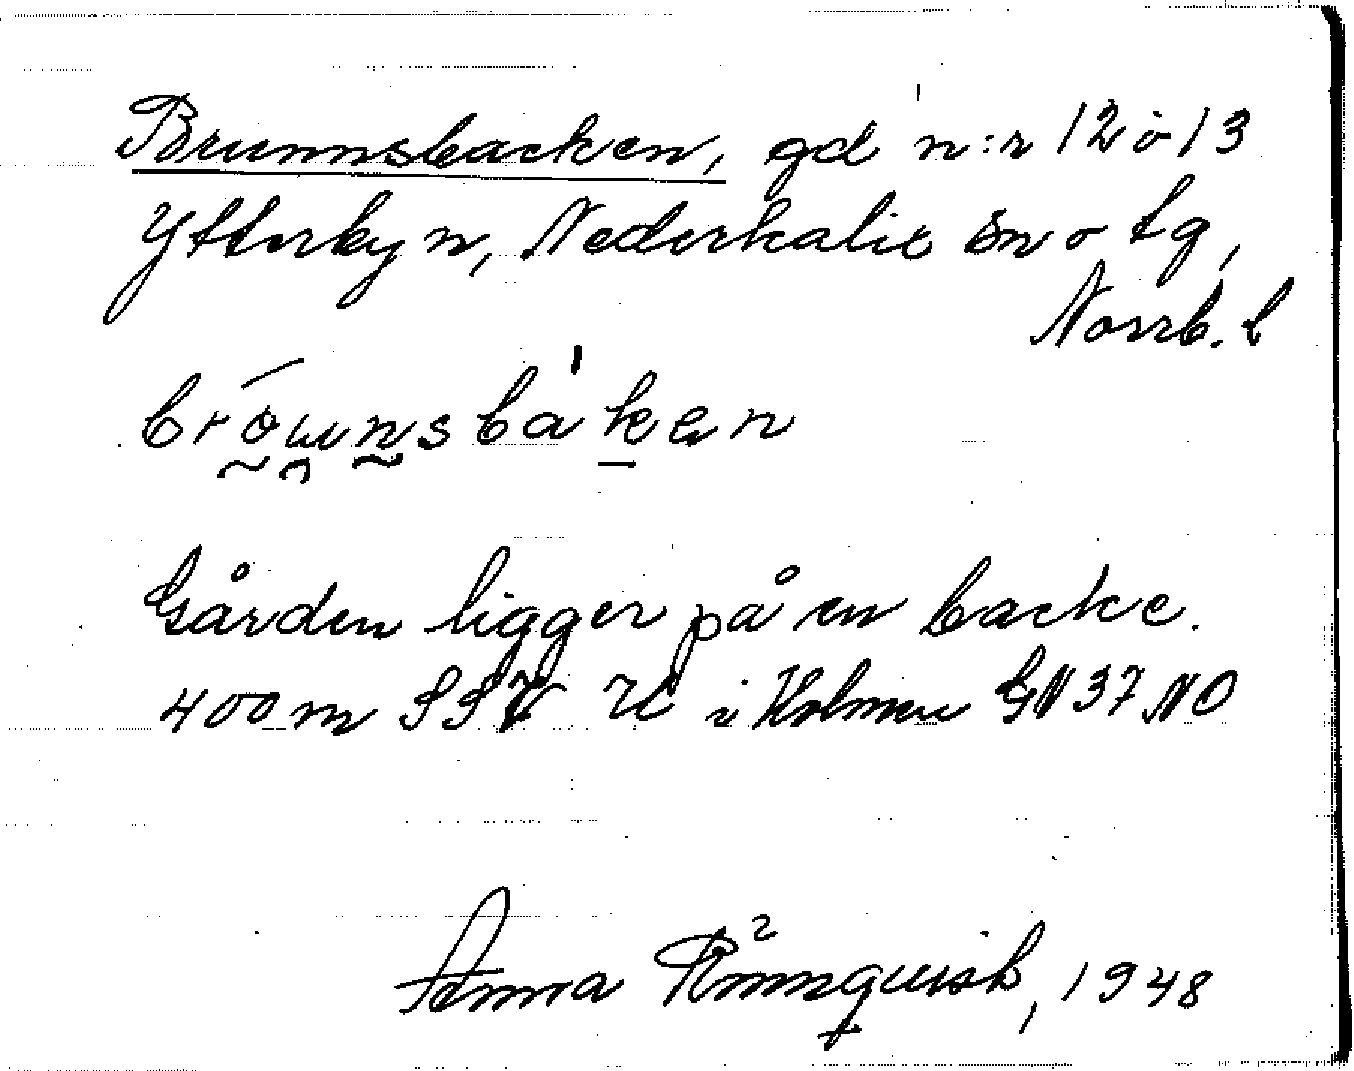 Brunnsbacken, gd n:r 12 o 13
Ytterbyn, Nederkalix sn o tg,
Norrb. l
brōwnsbàken
Gården ligger på en backe.
400 m SSV K i Holmen GN 37 NO
Anna Rönnquist, 1948